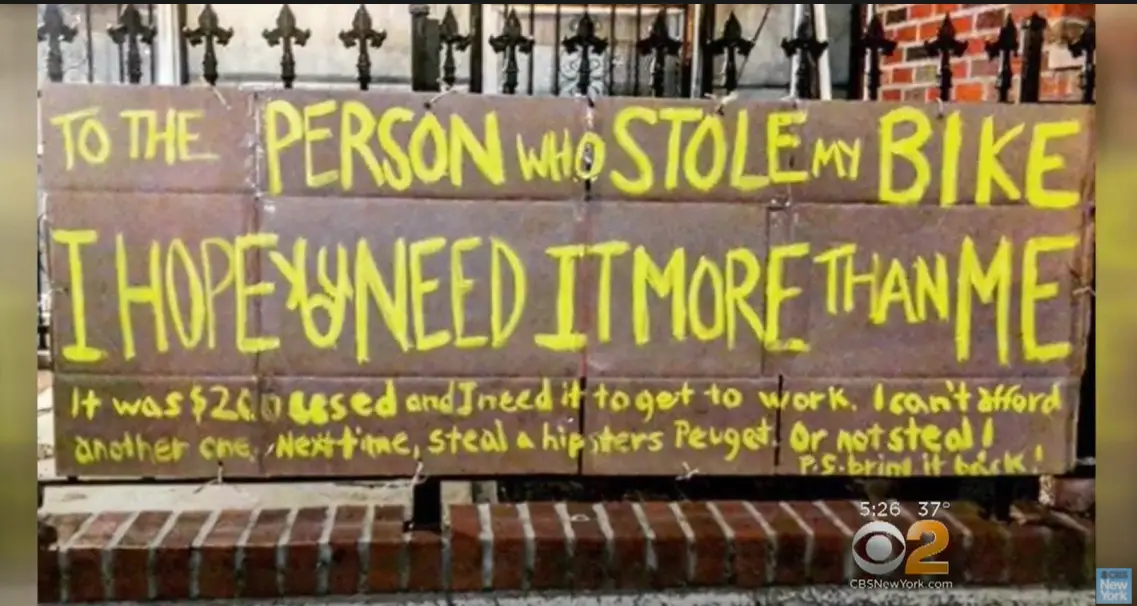 TO THE PERSON WHO STOLE MY BIKE
I HOPE YOU NEED IT MORE THAN ME
It was $200 used and I need it to get to work. I can't afford
another one. Next time, steal a hipsters Peuget. Or not steal!
P.S. bring it back!
5:26 37°
2
CBSNewYork.com
CBS
New
York